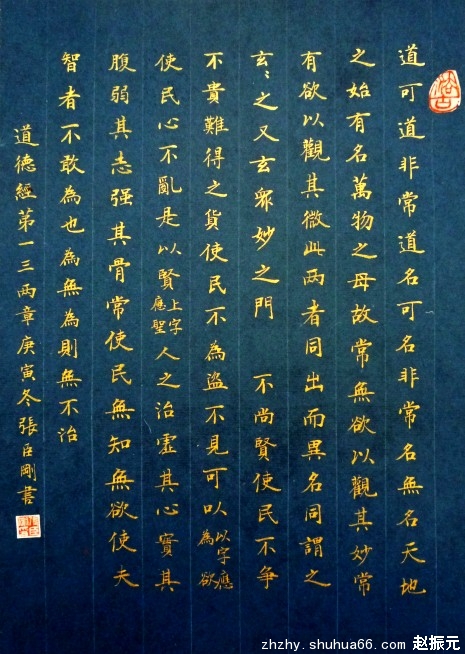 道可道非常道名可名非常名無名天地
之始有名萬物之母故常無欲以觀其妙常
有欲以觀其徼此两者同出而異名同謂之
玄〻之又玄眾妙之門 不尚賢使民不争
不貴難得之貨使民不為盜不見可以以字應為欲
使民心不亂是以賢上字應聖人之治虛其心實其
腹弱其志强其骨常使民無知無欲使夫
智者不敢為也為無為則無不治
道德經第一三两章庚寅冬張臣剛書
zhzhy.shuhua66.com 赵振元